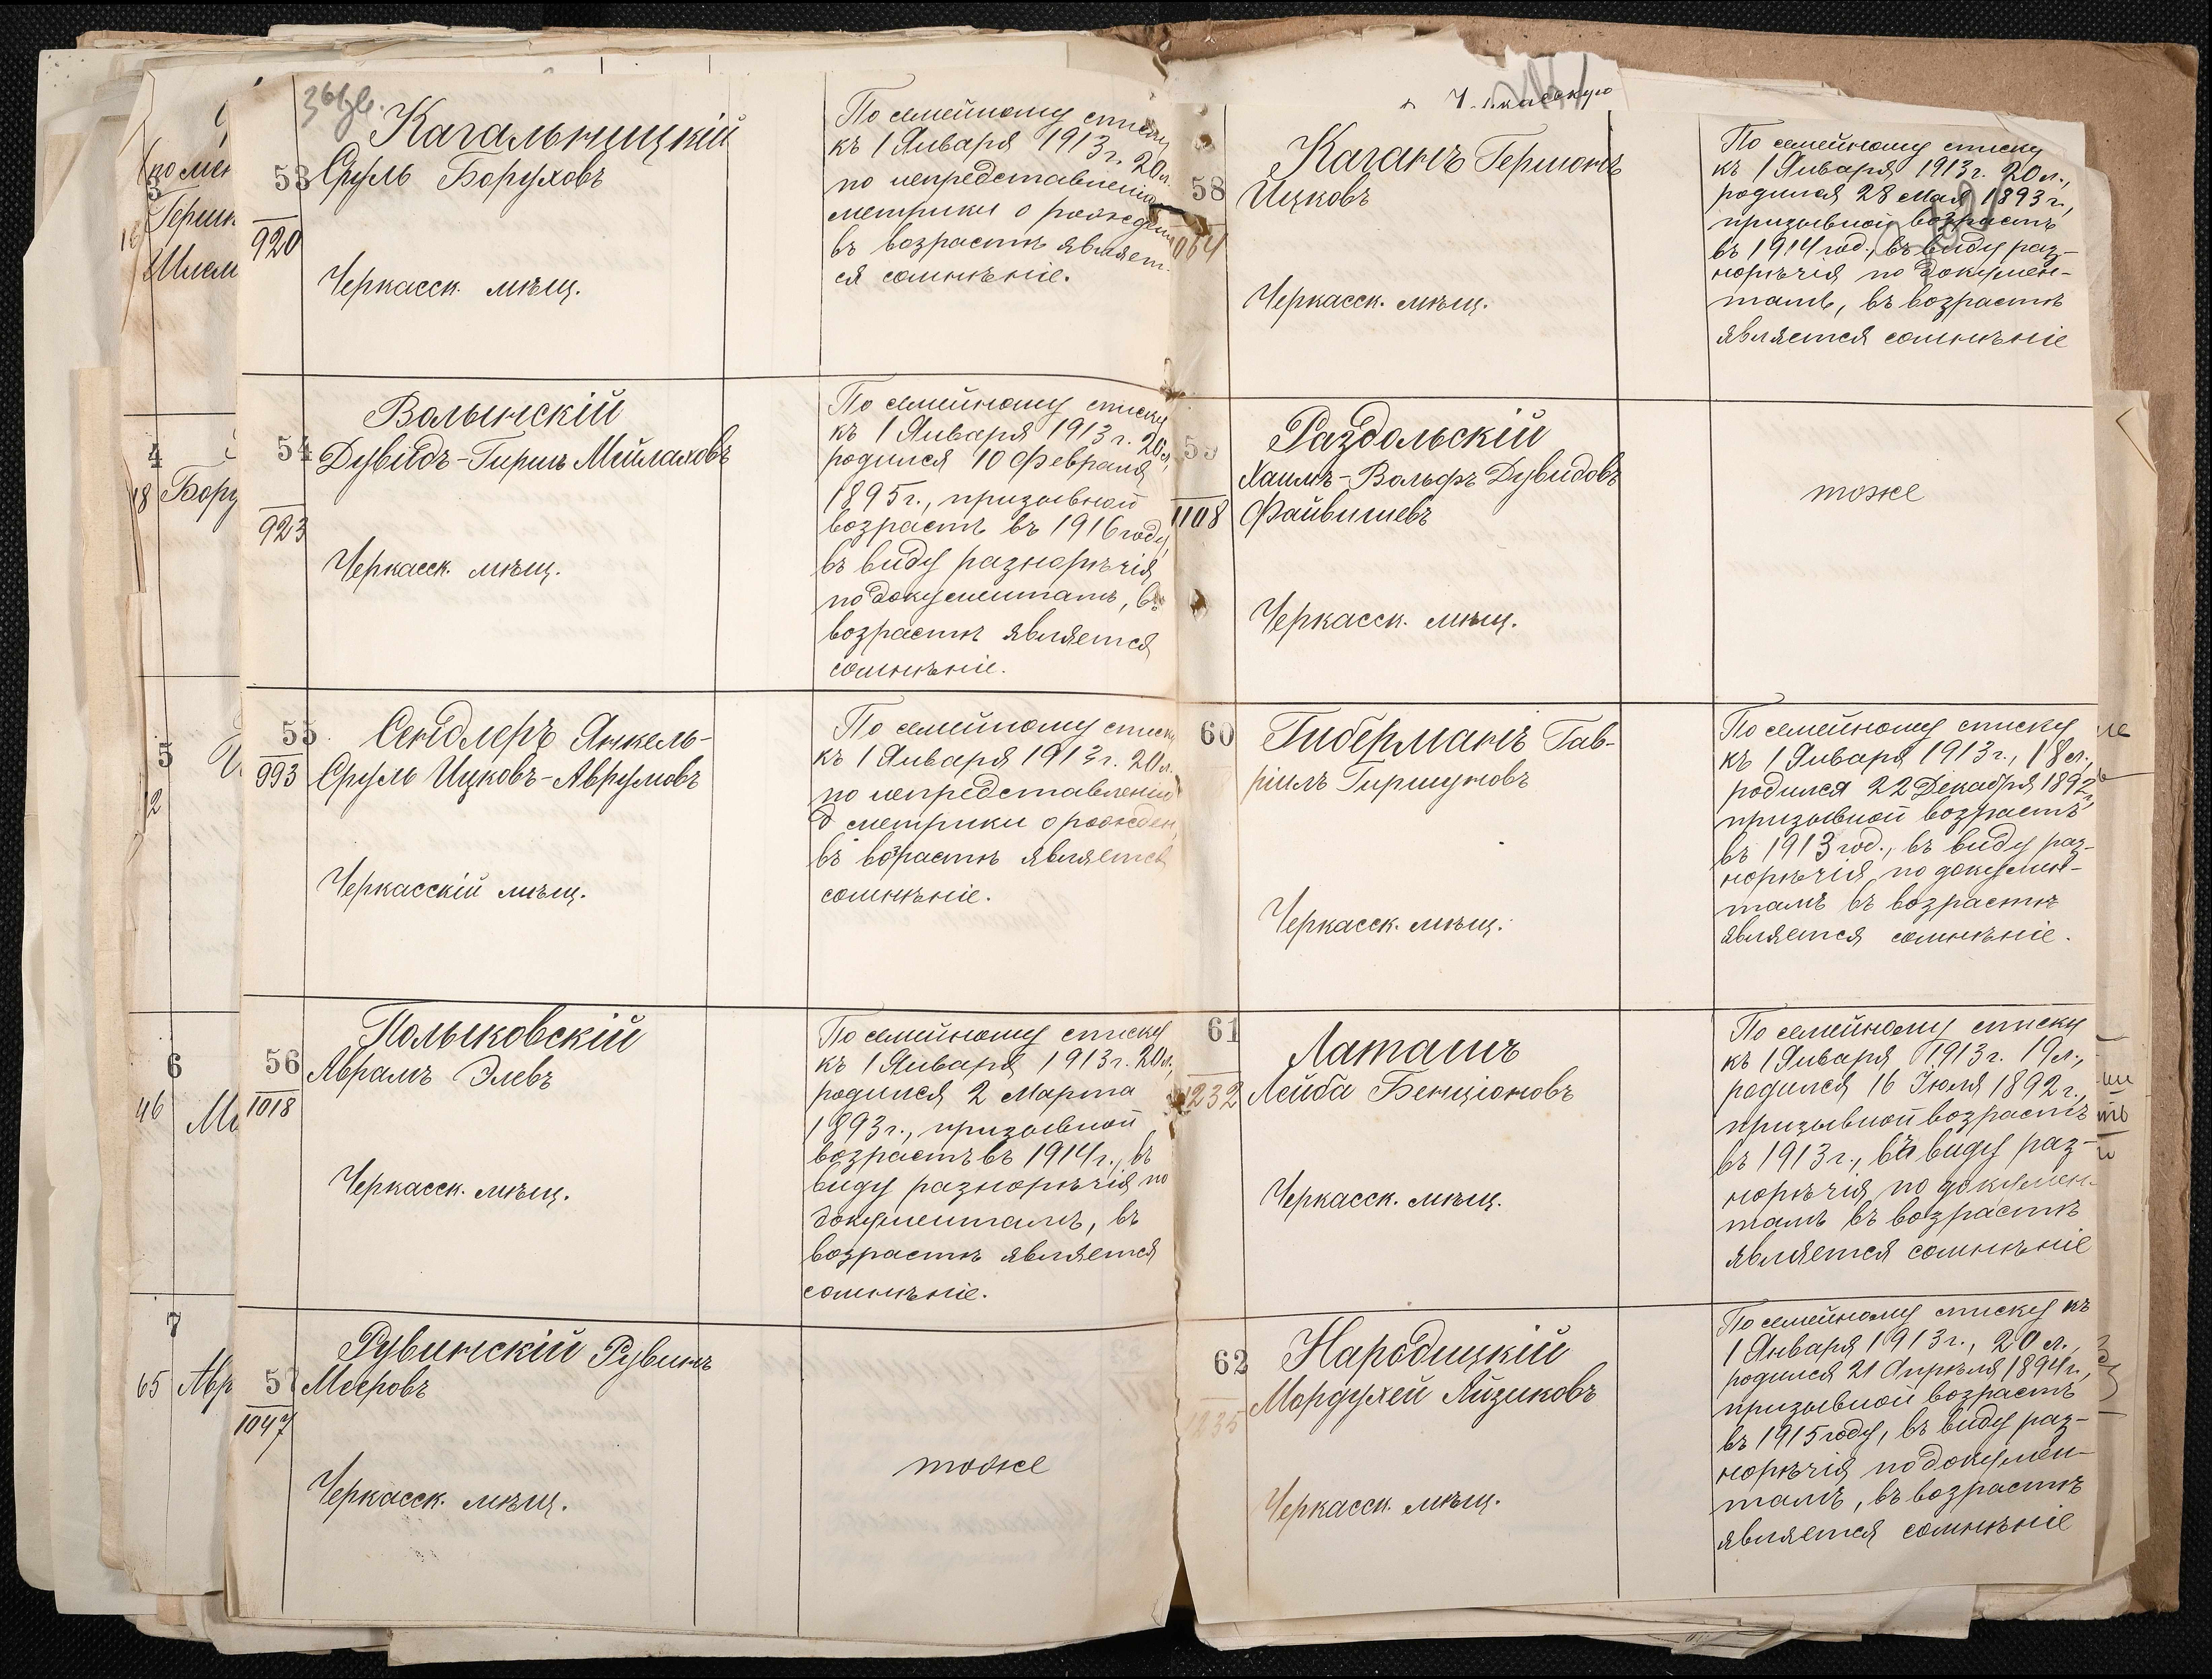 53
920
Кагальницкій
Сруль Боруховъ
Черкасск. мѣщ.
По семейному списку
къ 1 Января 1913 г. 20 л.
по непредставленію
метрики о рожденіи
въ возрастѣ являет-
ся сомнѣніе.
54
923
Волынскій
Дувидъ-Гиршъ Мейлаховъ
Черкасск. мѣщ.
По семейному списку
къ 1 Января 1913 г. 20 л.
родился 10 Февраля
1895 г., призывной
возрастъ въ 1916 году,
въ виду разнорѣчія
по документамъ, въ
возрастѣ является
сомнѣніе.
55
993
Сендлеръ Янкель-
Сруль Ицковъ-Аврумовъ
Черкасскій мѣщ.
По семейному списку
къ 1 Января 1913 г. 20 л.
по непредставленію
метрики о рожден.
въ возрастѣ является
сомнѣніе.
56
1018
Полыковскій
Абрамъ Элевъ
Черкасск. мѣщ.
По семейному списку
къ 1 Января 1913 г. 20 л.
родился 2 Марта
1893 г., призывной
возрастъ въ 1914 г., въ
виду разнорѣчія по
документамъ, въ
возрастѣ является
сомнѣніе.
57
1047
Рувинскій Рувинъ
Мееровъ
Черкасск. мѣщ.
тоже
58
064
Каганъ Гершонъ
Ицковъ
Черкасск. мѣщ.
По семейному списку
къ 1 Января 1913 г. 20 л.,
родился 28 Мая 1893 г.,
призывной возрастъ
въ 1914 год., въ виду раз-
норѣчія по докумен-
тамъ, въ возрастѣ
является сомнѣніе
59
1108
Раздольскій
Хаимъ-Вольфъ Дувидовъ
Файвишевъ
Черкасск. мѣщ.
тоже
60
Гиберманъ Гав-
ріилъ Гиршуновъ
Черкасск. мѣщ.
По семейному списку
къ 1 Января 1913 г., 18 л.,
родился 22 Декабря 1892 г.,
призывной возрастъ
въ 1913 год., въ виду раз-
норѣчія по докумен-
тамъ въ возрастѣ
является сомнѣніе.
61
1232
Латашъ
Лейба Бенціоновъ
Черкасск. мѣщ.
По семейному списку
къ 1 Января 1913 г. 19 л.,
родился 16 Іюля 1892 г.,
призывной возрастъ
въ 1913 г., въ виду раз-
норѣчія по докумен-
тамъ въ возрастѣ
является сомнѣніе
62
1235
Народицкій
Мордухей Айзиковъ
Черкасск. мѣщ.
По семейному списку къ
1 Января 1913 г., 20 л.,
родился 21 Апрѣля 1894 г.,
призывной возрастъ
въ 1915 году, въ виду раз-
норѣчія по докумен-
тамъ, въ возрастѣ
является сомнѣніе
4
18
5
12
6
46
7
65